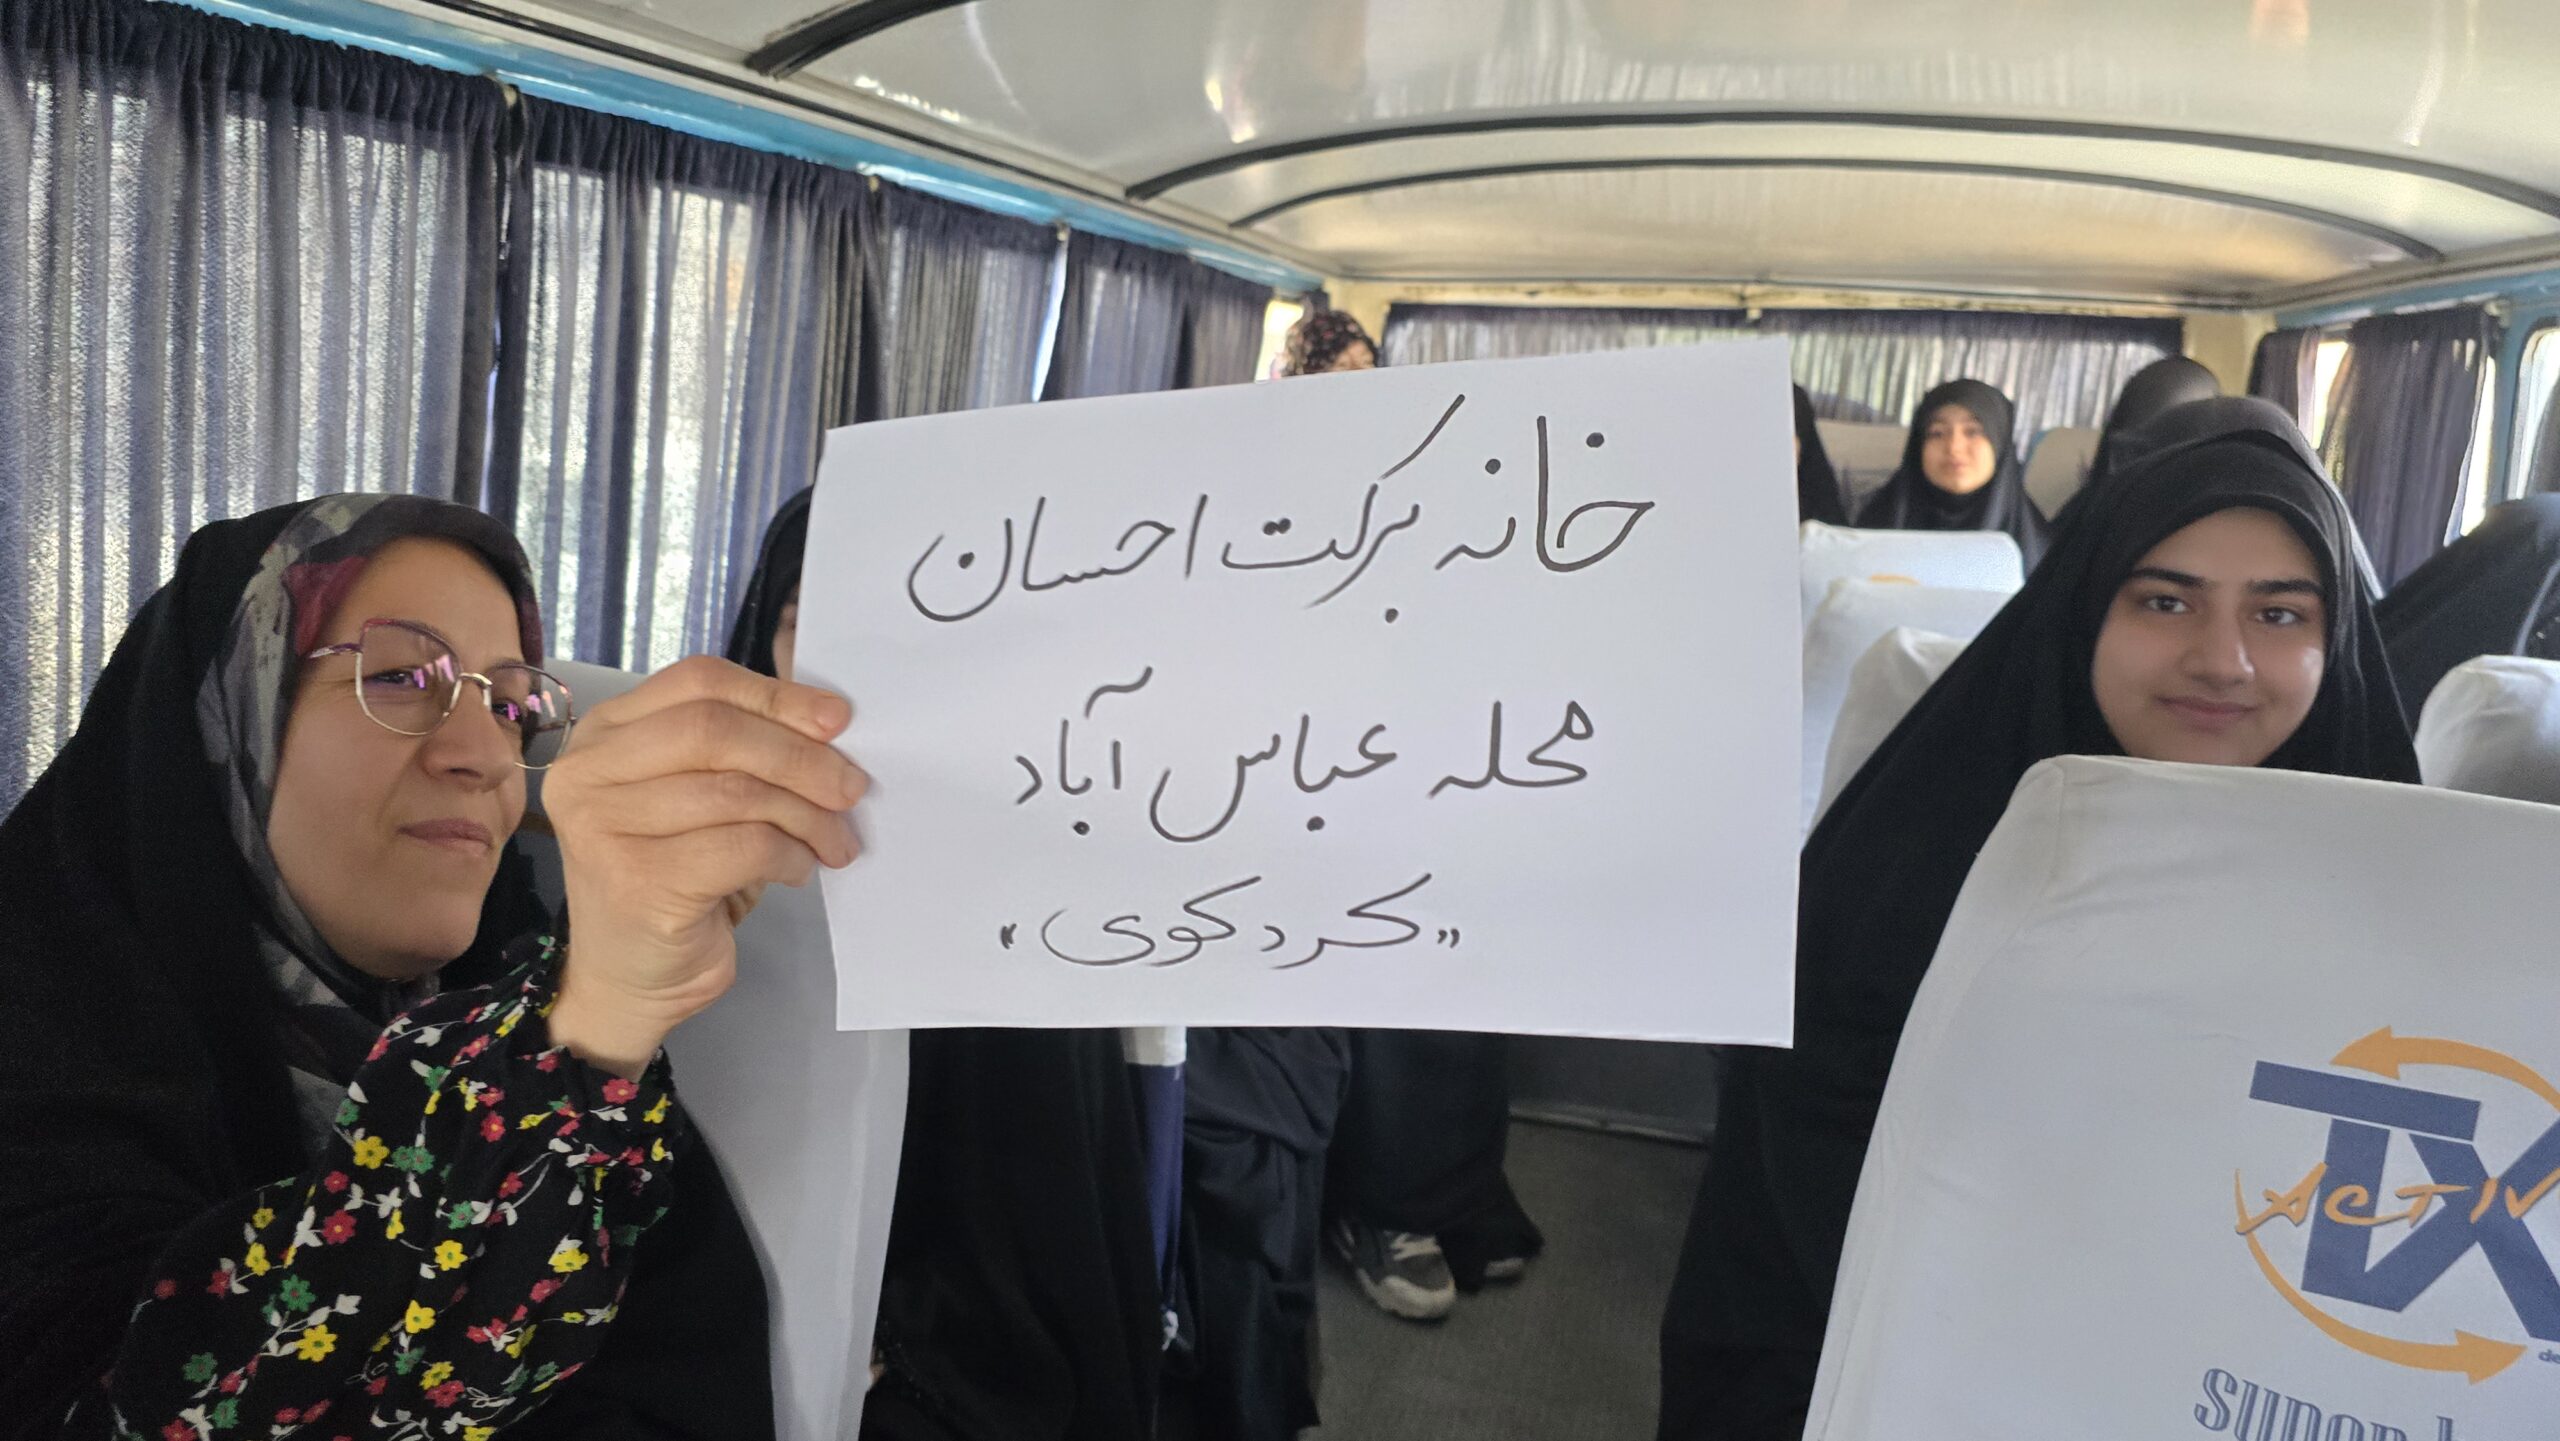 خانه برکت احسان
محله عباس آباد
"کردکوی"
TX
ACTIV
super